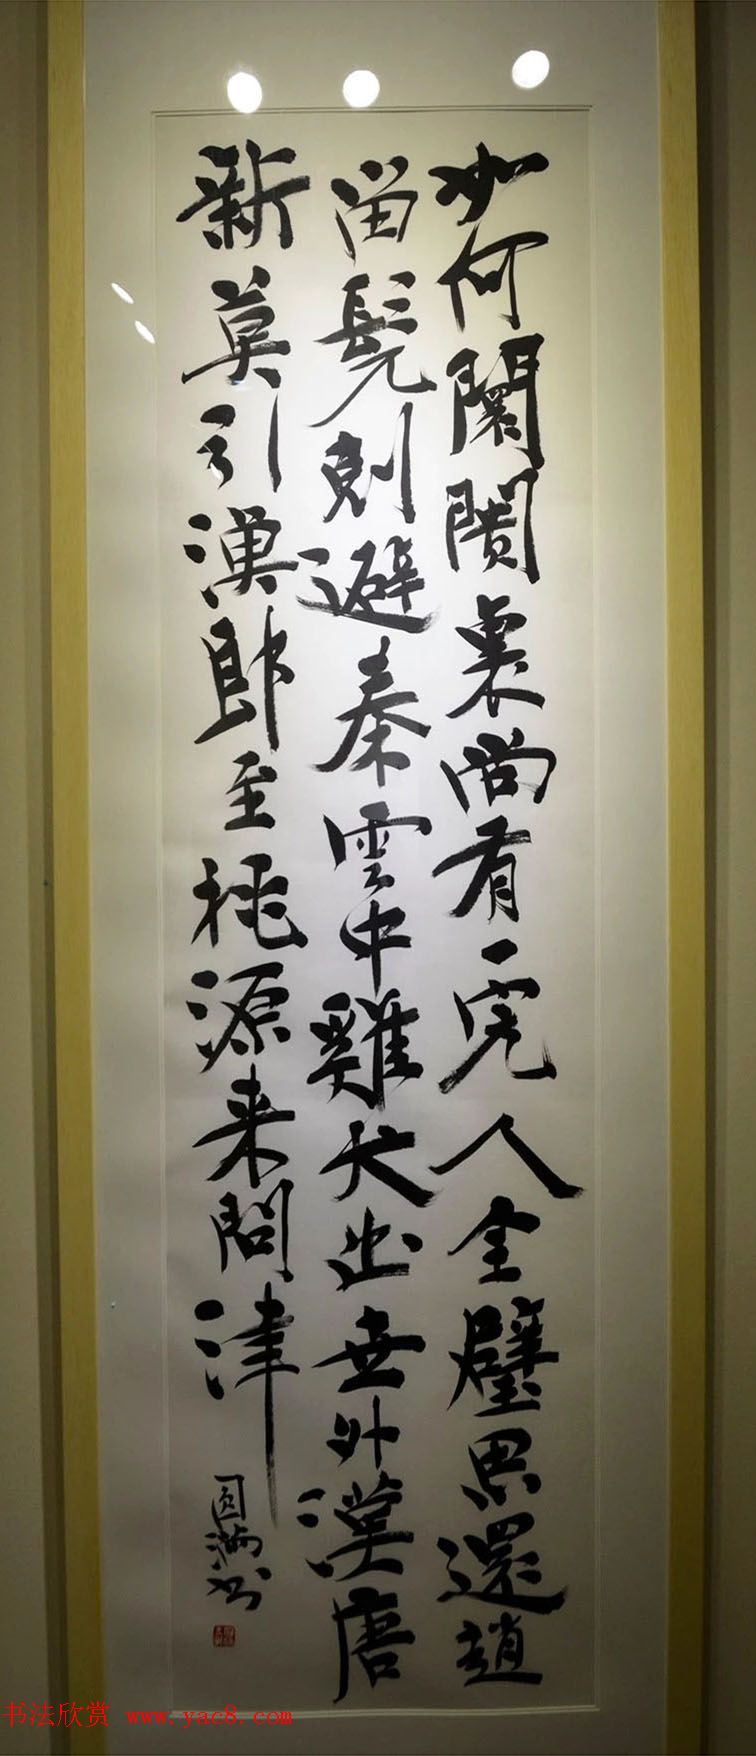 如何闤闠裏尚有一完人全璧思還趙
留髡避秦雲中雞犬世外漢唐
新莫引漁郎至桃源来問津
圓満書
书法欣赏 www.yac8.com